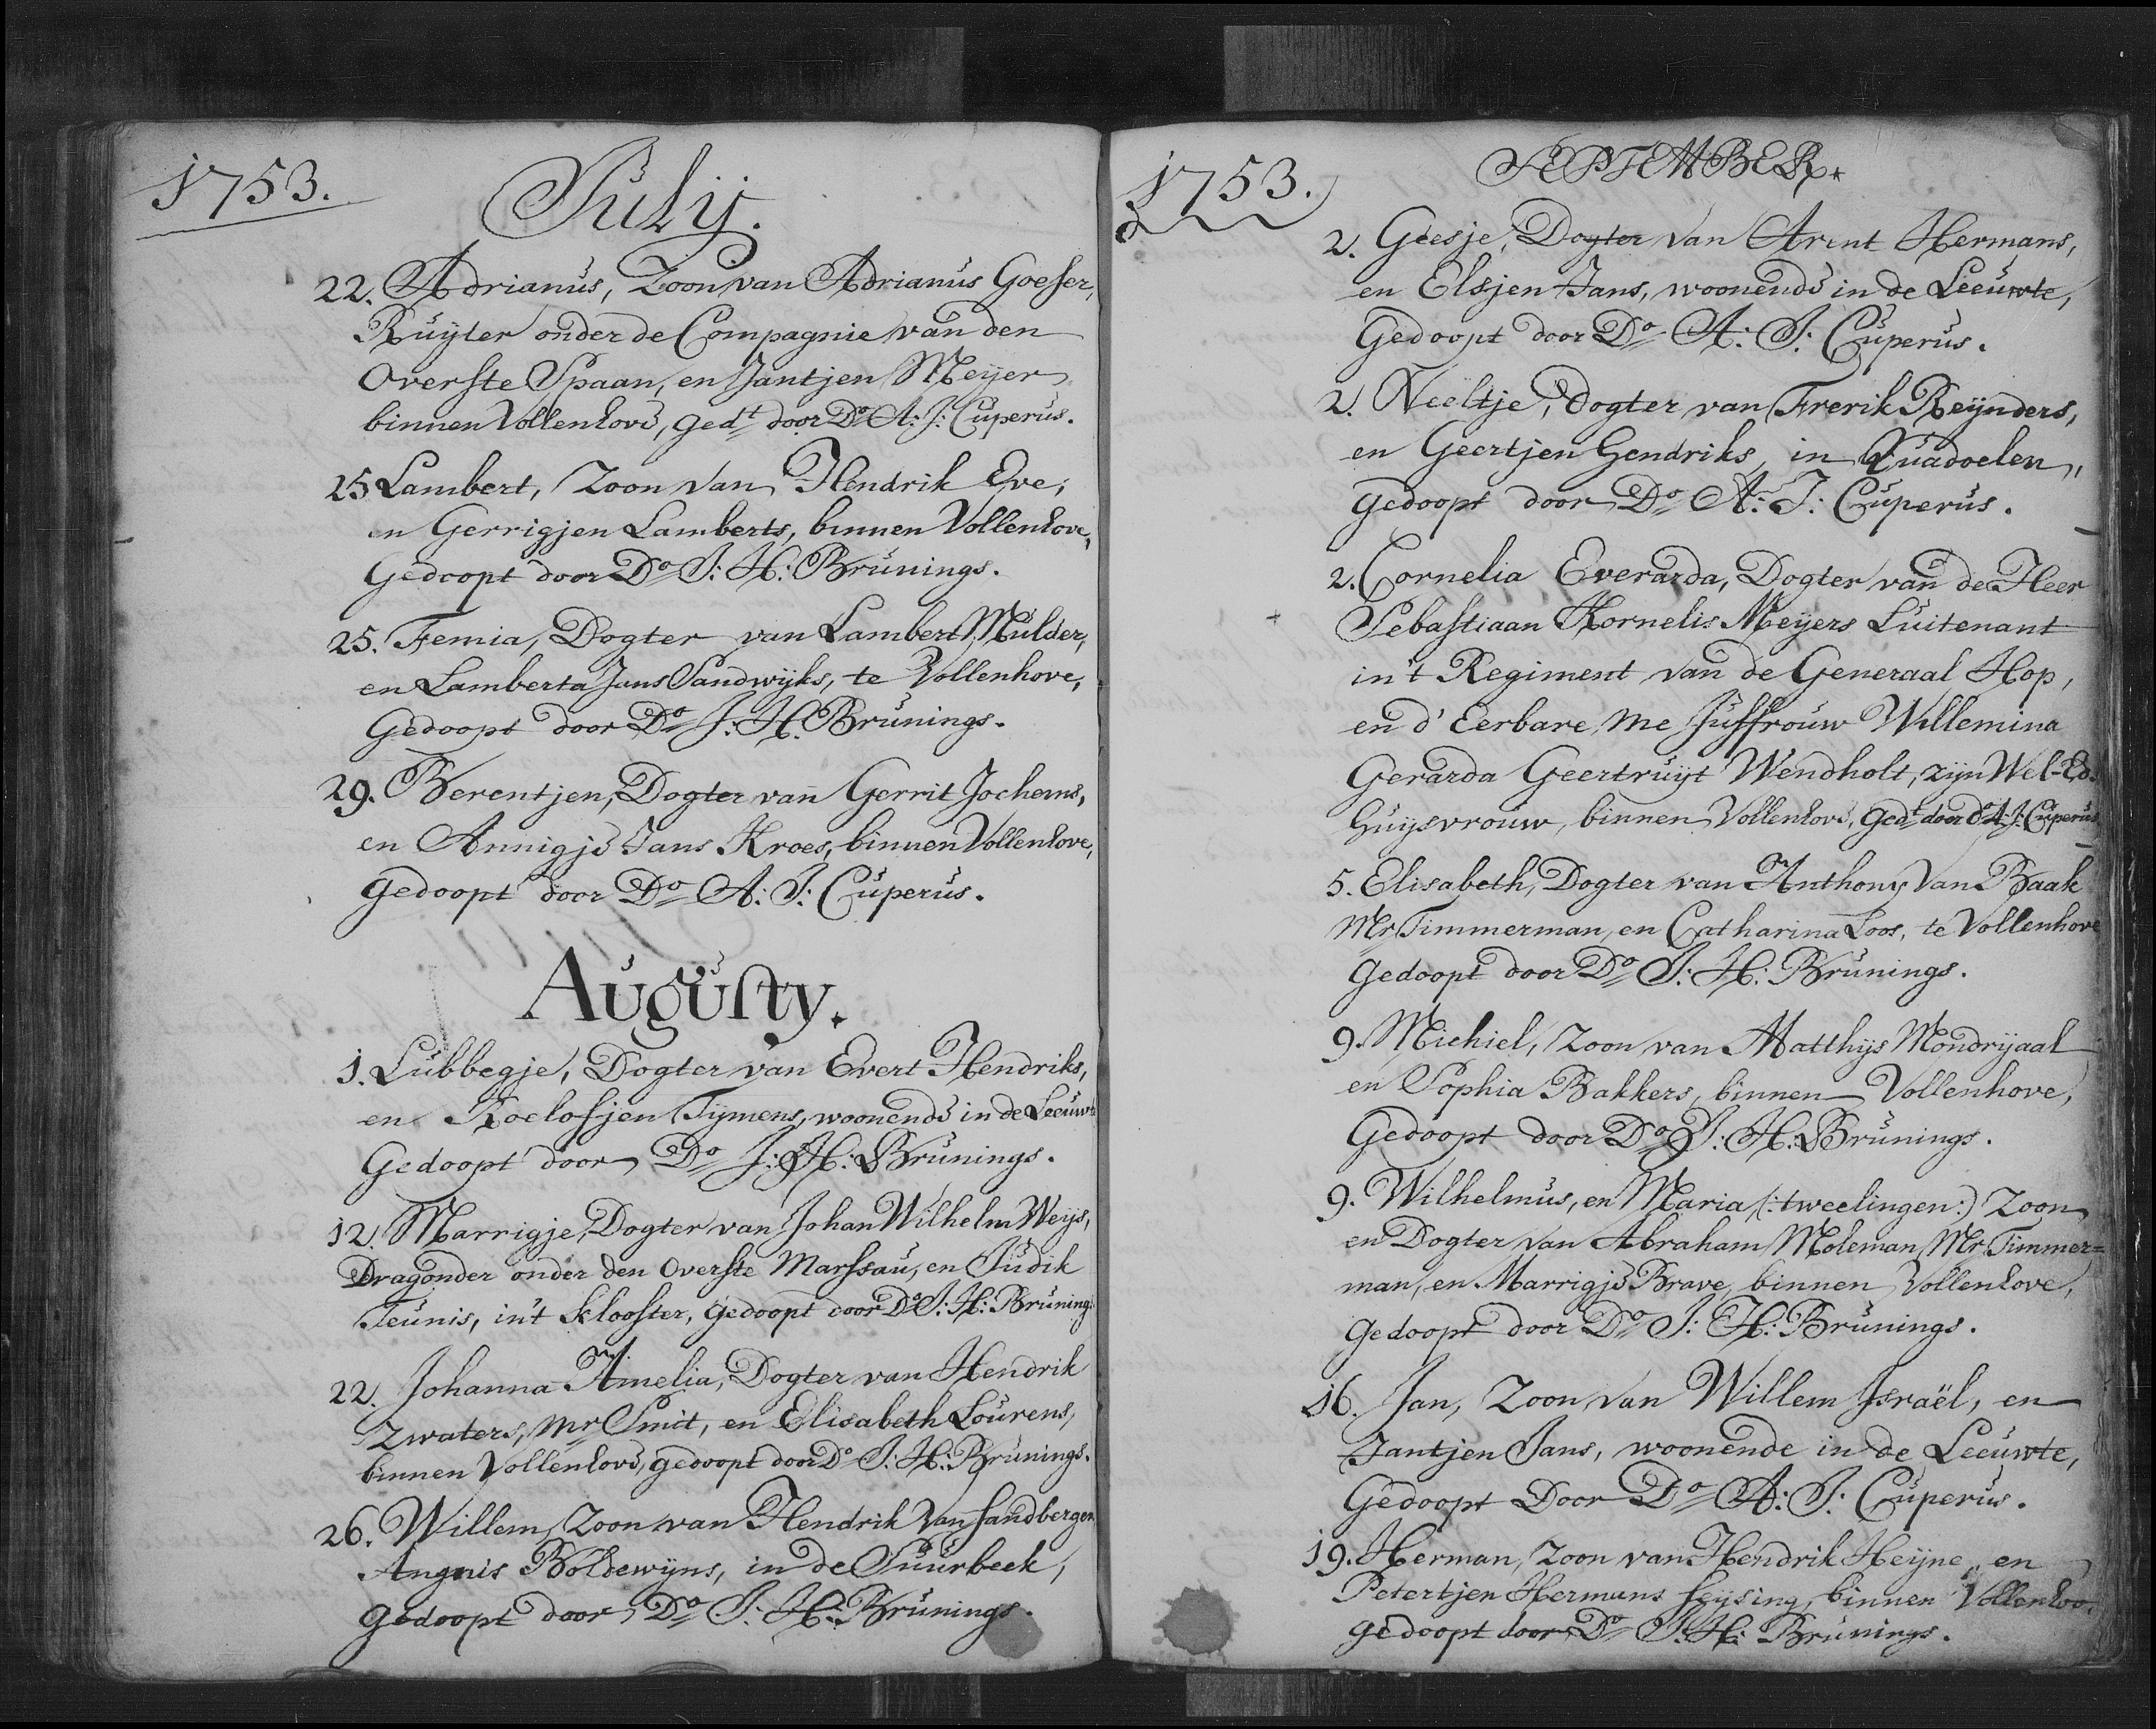 1753.
Julij.
22. Adrianus, Zoon van Adrianus Goeser,
Ruyter onder de Compagnie van den
Overste Spaan, en Jantjen Meyer
binnen Vollenhove, gedt door Do A: J: Cuperus.
25 Lambert, Zoon van Hendrik Eve,
en Gerrigjen Lamberts, binnen Vollenhove,
Gedoopt door Do J: H: Brunings.
25. Femia, Dogter van Lambert Mulder,
en Lamberta Jans Sandwijks, te Vollenhove,
Gedoopt door Do J: H. Brunings.
29. Berentjen, Dogter van Gerrit Jochems,
en Annigje Jans Kroes, binnen Vollenhove,
Gedoopt door Do A: J: Cuperus.
Augusty.
1. Lubbegje, Dogter van Evert Hendriks,
en Roelofjen Tymens, woonende in de Leeuwte
Gedoopt door Do J: H: Brunings.
12. Marrigje, Dogter van Johan Wilhelm Weys,
Dragonder onder den Overste Marssau, en Judik
Teunis, in't klooster, gedoopt door Do J: H: Brunings
22. Johanna Amelia, Dogter van Hendrik
Zwaters, Mr Smit, en Elisabeth Lourens,
binnen Vollenhove, gedoopt door Do J: H: Brunings.
26. Willem, Zoon van Hendrik van Sandbergen
Angnis Boldewyns, in de Suurbeek,
gedoopt door Do J: H: Brunings.
1753.
SEPTEMBER.
2. Geesje, Dogter van Arent Hermans,
en Elsjen Jans, woonende in de Leeuwte,
Gedoopt door Do A: J: Cuperus.
2. Neeltje, dogter van Frerik Reynders,
en Geertjen Hendriks, in Quadoelen,
gedoopt door Do A: J: Cuperus.
2. Cornelia Everarda, Dogter van de Heer
Sebastiaan Kornelis Meyers Luitenant
in't Regiment van de Generaal Hop,
en d'Eerbare Me Juffrouw Willemina
Gerarda Geertruyt Wendholt, zijn Wel-Ed.
Huysvrouw, binnen Vollenhove, gedt door Do A: J: Cuperus
5. Elisabeth, Dogter van Anthony van Baak
Mr Timmerman, en Catharina Loos, te Vollenhove
Gedoopt door Do J: H: Brunings.
9. Michiel, Zoon van Matthijs Mondrijaal
en Sophia Bakkers, binnen Vollenhove,
Gedoopt door Do J: H: Brunings.
9. Wilhelmus, en Maria (: tweelingen :) Zoon
en Dogter van Abraham Moleman, Mr Timmer=
man, en Marrigje Brave, binnen Vollenhove,
gedoopt door Do J: H: Brunings.
16. Jan, Zoon van Willem Israël, en
Jantjen Jans, woonende in de Leeuwte,
Gedoopt Door Do A: J: Cuperus.
19. Herman, Zoon van Hendrik Heyne, en
Petertjen Hermans Heysing, binnen Vollenhove
gedoopt door Do J: H: Brunings.